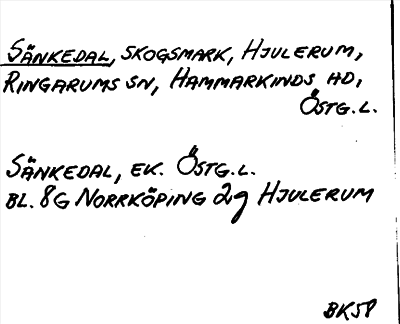 SÄNKEDAL, SKOGSMARK, HJULERUM,
RINGARUMS SN, HAMMARKINDS HD,
ÖSTG.L.
SÄNKEDAL, EK. ÖSTG.L.
BL. 8G NORRKÖPING 2g HJULERUM
BK58